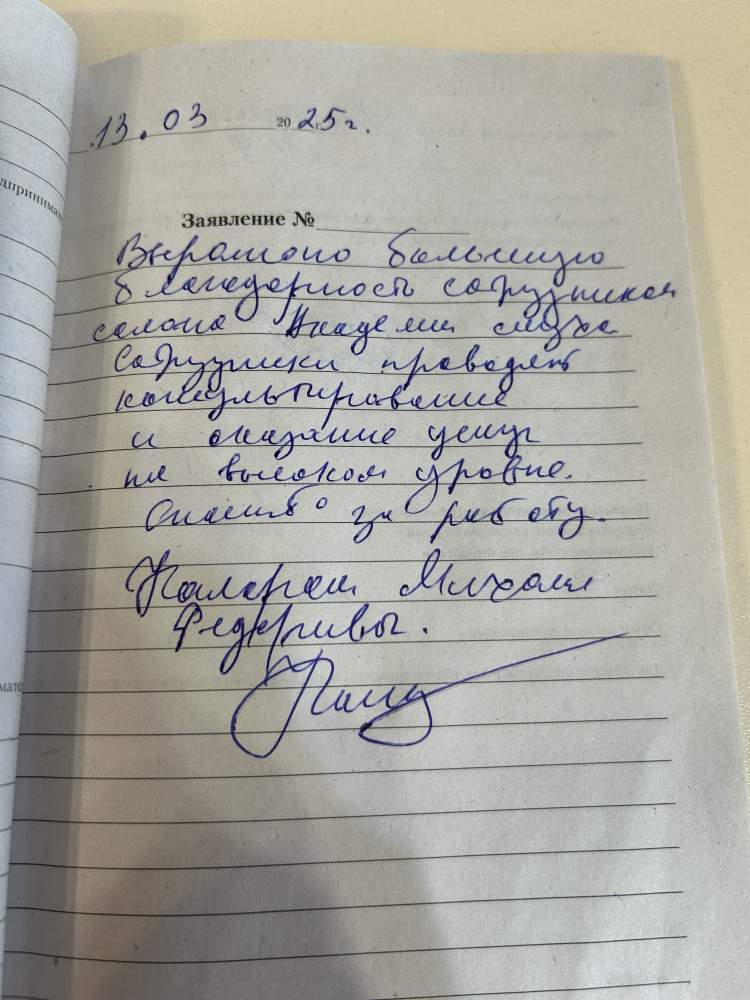 13.03 2025г.
Заявление №
Выражаю большую
благодарность сотрудникам
салона Академия слуха
Сотрудники проводят
консультирование
и оказание услуг
на высоком уровне.
Спасибо за работу.
Михаил
дпринимате
мате